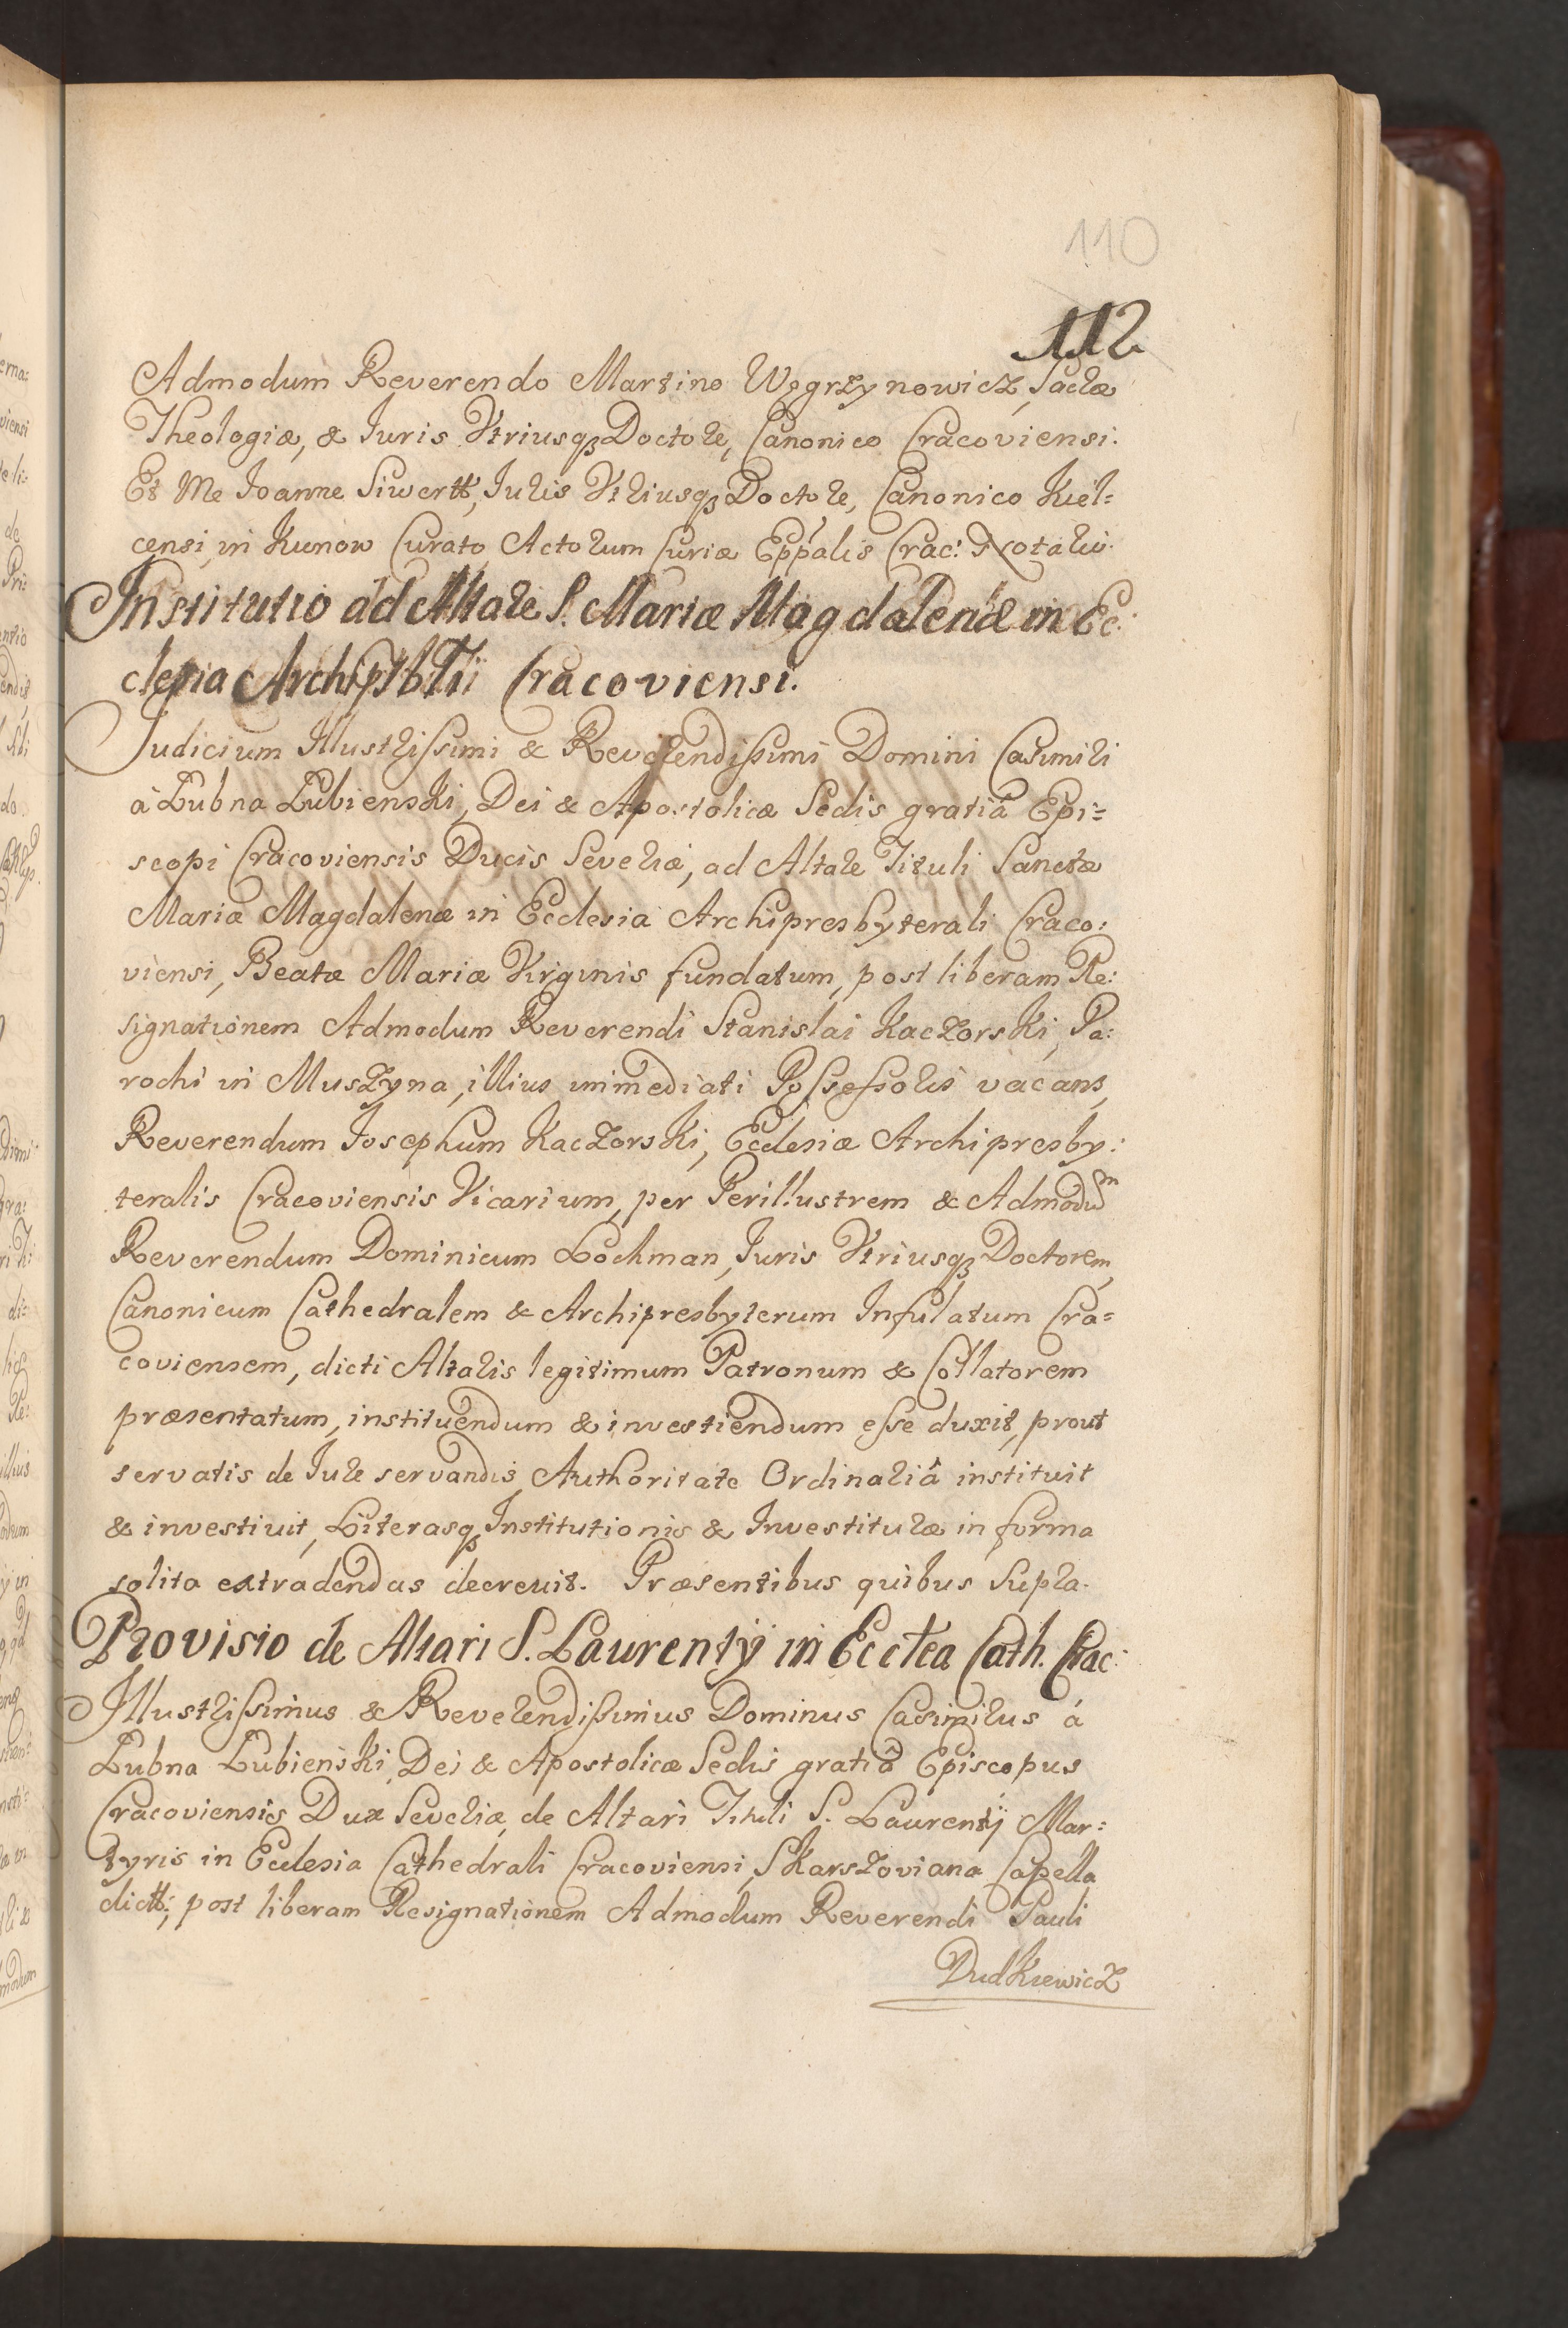 110
112
Admodum Reverendo Martino Węgrzynowicz, Sacræ
Theologiæ, & Iuris Vtriusqꝫ Doctore, Canonico Cracoviensi.
Et Me Ioanne Siwertt, Iuris Vtriusqꝫ Doctore, Canonico Kiel=
censi, in Kunow Curato Actorum Curiæ Eppalis Crac: Notario.
Institutio ad Altare S. Mariæ Magdalenæ in Ec:
clesia Archipsbtii Cracoviensi.
Judicium Illustrissimi & Reverendissimi Domini Casimiri
à Łubna Łubienski, Dei & Apostolicæ Sedis gratiâ Epi=
scopi Cracoviensis Ducis Severiæ, ad Altare Tituli Sanctæ
Mariæ Magdalenæ in Ecclesia Archipresbyterali Craco:
viensi, Beatæ Mariæ Virginis fundatum, post liberam Re:
signationem Admodum Reverendi Stanislai Kaczorski, Pa:
rochi in Muszyna, illius immediati Possessoris vacans,
Reverendum Iosephum Kaczorski, Ecclesiæ Archipresby:
teralis Cracoviensis Vicarium, per Perillustrem & Admodũm
Reverendum Dominicum Lochman, Iuris Vtriusqꝫ Doctorem,
Canonicum Cathedralem & Archipresbyterum Infulatum Cra=
coviensem, dicti Altaris legitimum Patronum & Collatorem
præsentatum, instituendum & investiendum esse duxit, prout
servatis de Iure servandis, Authoritate Ordinariâ instituit
& investiuit, Literasqꝫ Institutionis & Investituræ in forma
solita extradendas decrevit. Præsentibus quibus supra.
Provisio de Altari S. Laurentÿ in Ecclea Cath. Crac:
Illustrissimus & Reverendissimus Dominus Casimirus à
Łubna Łubieński, Dei & Apostolicæ Sedis gratiâ Episcopus
Cracoviensis Dux Severiæ, de Altari Tituli S. Laurentÿ Mar:
tyris in Ecclesia Cathedrali Cracoviensi, Skarszoviana Capella
dictt:, post liberam Resignationem Admodum Reverendi Pauli
Dudkiewicz